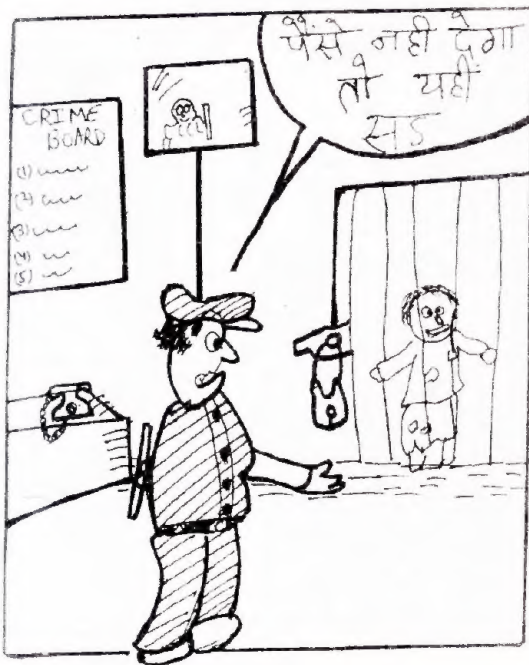 पैसे नही देगा
तो यहीं
सड
CRIME
BOARD
(1)
(2)
(3)
(4)
(5)